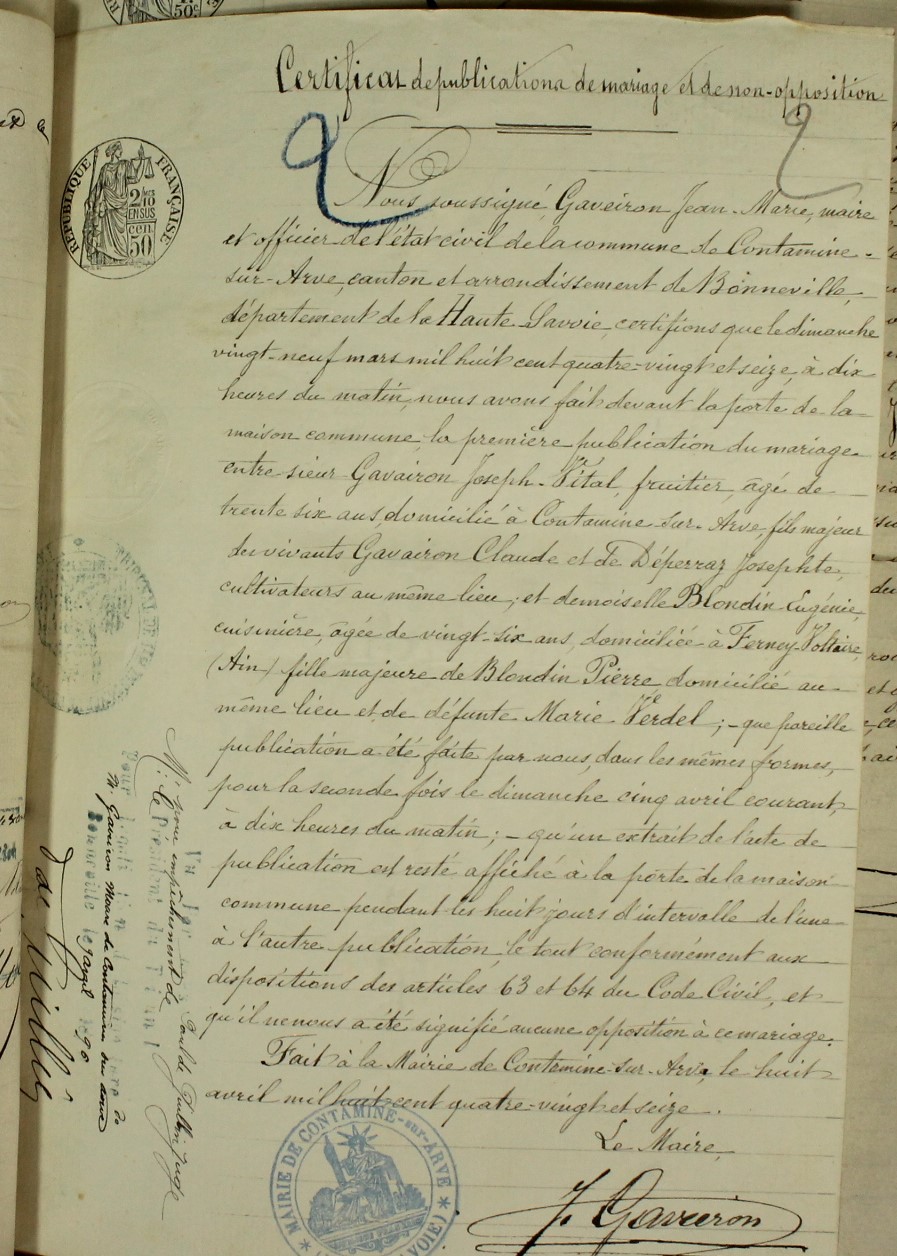 Certificat de publications de mariage et de non-opposition
2
2
RÉPUBLIQUE FRANÇAISE
2/10
EN SUS
50
Nous, soussigné, Gaveiron Jean-Marie, maire
et officier de l'état civil de la commune de Contamine-
sur-Arve, canton et arrondissement de Bonneville,
département de la Haute-Savoie, certifions que le dimanche
vingt-neuf mars mil huit cent quatre-vingt et seize, à dix
heures du matin, nous avons fait devant la porte de la
maison commune, la première publication du mariage
entre sieur Gavairon Joseph-Vital, fruitier, âgé de
trente six ans, domicilié à Contamine-sur-Arve, fils majeur
des vivants Gavairon Claude et de Déperraz Josephte,
cultivateurs au même lieu; et demoiselle Blondin Eugénie,
cuisinière, âgée de vingt-six ans, domiciliée à Ferney-Voltaire,
(Ain) fille majeure de Blondin Pierre domicilié au
même lieu et de défunte Marie Verdel; - que pareille
publication a été faite par nous, dans les mêmes formes,
pour la seconde fois le dimanche cinq avril courant,
à dix heures du matin; - qu'un extrait de l'acte de
publication est resté affiché à la porte de la maison
commune pendant les huit jours d'intervalle de l'une
à l'autre publication, le tout conformément aux
dispositions des articles 63 et 64 du Code Civil, et
qu'il ne nous a été signifié aucune opposition à ce mariage.
Fait à la Mairie de Contamine-sur-Arve, le huit
avril mil huit cent quatre-vingt et seize.
Le Maire,
J. Gaveiron
MAIRIE DE CONTAMINE-sur-ARVE
Vu
pour empêchement de
M. Gaveiron Maire de Contamine sur Arve
Bonneville le 9 avril